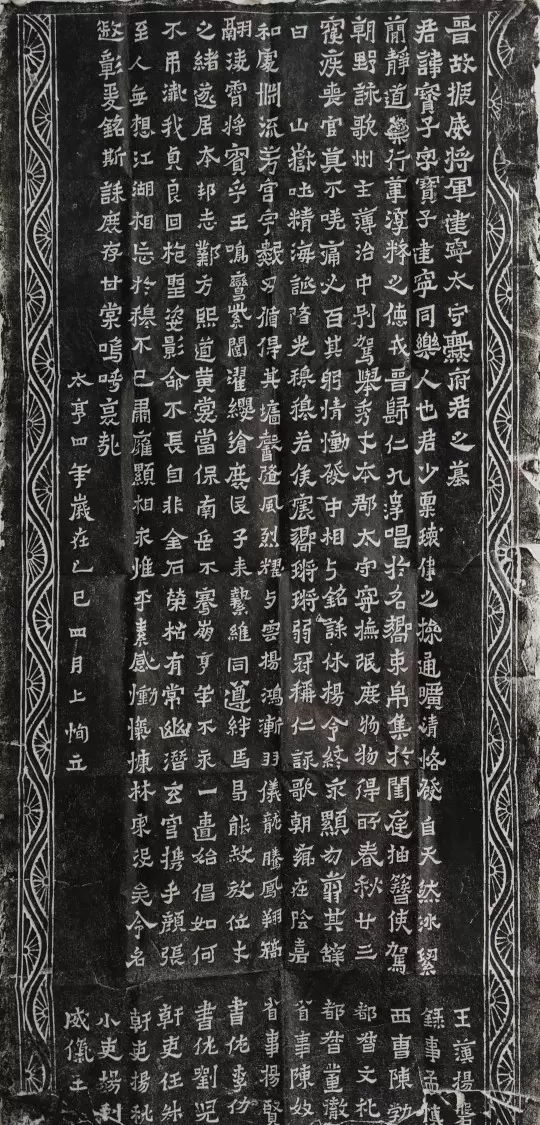 晉故振威將軍建寧太守爨府君之墓
君諱寶子字寶子建寧同樂人也君少稟瓌偉之操通曠清恪發自天然冰絜
簡靜道兼行葦淳粹之德戎晉歸仁九皋唱於名響束帛集於閨庭抽簪俟駕
朝野詠歌州主薄治中別駕舉秀才本郡太守寧撫氓庶物物得所春秋廿三
寢疾喪官莫不嗟痛人百其躬情慟發中相与銘誄休揚令終永顯勿翦其辭
曰
山嶽吐精海誕陼光穆穆君侯震響鏘鏘弱冠稱仁詠歌朝鄉在陰嘉
和處淵流芳宮宇數仞循得其墻馨隨風烈耀与雲揚鴻漸羽儀龍騰鳳翔矯
翮凌霄將賓乎王鳴鸞紫闥濯纓滄庶民子來縶維同嚮絆馬曷能赦放位才
之緒遂居本邦志鄴方熙道黃裳當保南岳不騫崩享年不永一匱始倡如何
不弔殲我貞良回抱聖姿影命不長自非金石榮枯有常幽潛玄宮攜手顏張
至人無想江湖相忘於穆不已肅雍顯相永惟平素感慟愾慷林宗沒矣令名
遐彰爰銘斯誄庶存甘棠嗚呼哀哉
太亨四年歲在乙巳四月上恂立
主薄楊磐
錄事孟慎
西曹陳勃
都督文礼
都督董徹
省事陳奴
省事楊賢
書佐李仂
書佐劉兒
幹吏任升
幹吏楊秋
小吏楊利
威儀王